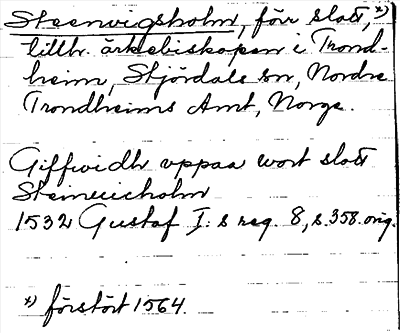 Steenvigsholm, förr slott, *)
tillhr. ärkebiskopen i Trond-
heim, Stjördals sn, Nordre
Trondheims Amt, Norge.
Giffwidh vppaa wort slott
Steinuicholm
1532 Gustaf I:s reg. 8, s. 358. orig.
*) förstört 1564.